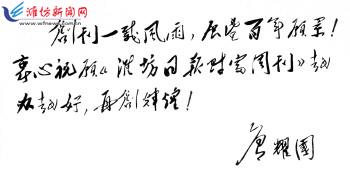 潍坊新闻网
www.wfnews.com.cn
創刊一載風雨，展望百年願景！
衷心祝愿《潍坊日報财富周刊》越
办越好，再創辉煌！
詹耀國